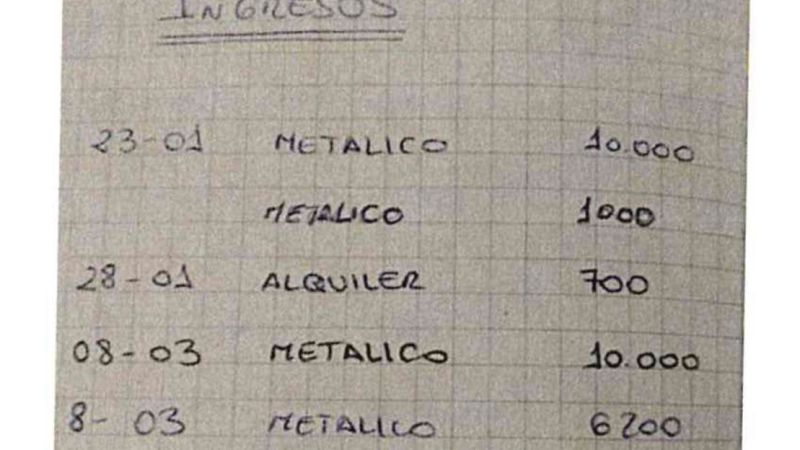 INGRESOS
23-01 METALICO 10.000
METALICO 1000
28-01 ALQUILER 700
08-03 METALICO 10.000
8-03 METALICO 6200